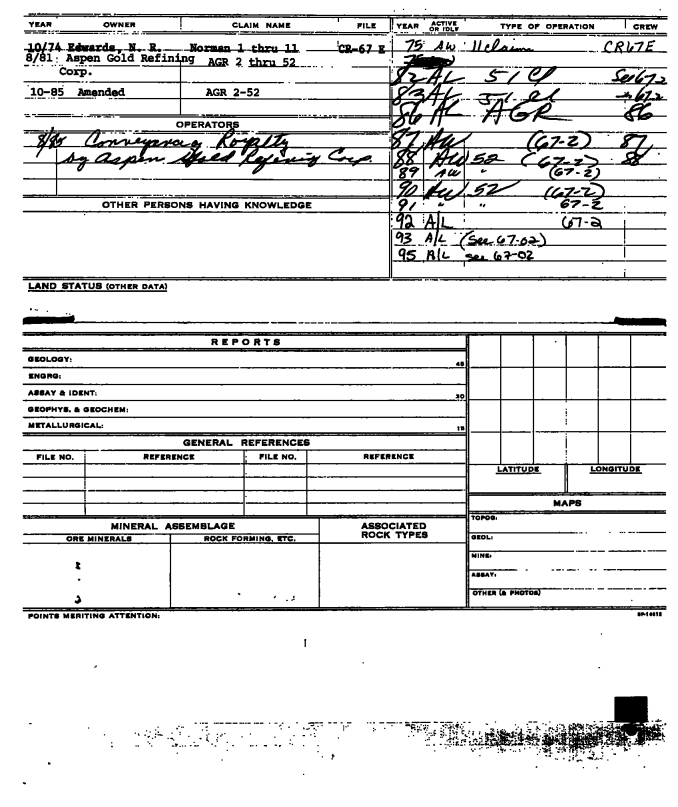 YEAR OWNER CLAIM NAME FILE
10/74 Edwards, N. R. Norman 1 thru 11 CR-67 E
8/81 Aspen Gold Refining AGR 2 thru 52
Corp.
10-85 Amended AGR 2-52
OPERATORS
8/85 Conveyancy Royalty
by Aspen Gold Refining Corp.
OTHER PERSONS HAVING KNOWLEDGE
YEAR ACTIVE OR IDLE TYPE OF OPERATION CREW
75 AW 11 claims CR67E
82 AL 51 Cl See 67-2
83 AL 51 Cl 67-2
86 AL AGR 86
87 AW (67-2) 87
88 AW 52 (67-2) 88
89 AW " (67-2)
90 AW 52 (67-2)
91 " " 67-2
92 A/L 67-2
93 A/L (See 67-02)
95 A/L see 67-02
LAND STATUS (OTHER DATA)
REPORTS
GEOLOGY: 45
ENGRG:
ASSAY & IDENT: 30
GEOPHYS. & GEOCHEM:
METALLURGICAL: 15
GENERAL REFERENCES
FILE NO. REFERENCE FILE NO. REFERENCE
MINERAL ASSEMBLAGE
ORE MINERALS ROCK FORMING, ETC.
ASSOCIATED
ROCK TYPES
LATITUDE LONGITUDE
MAPS
TOPOG:
GEOL:
MINE:
ASSAY:
OTHER (& PHOTOS)
POINTS MERITING ATTENTION: